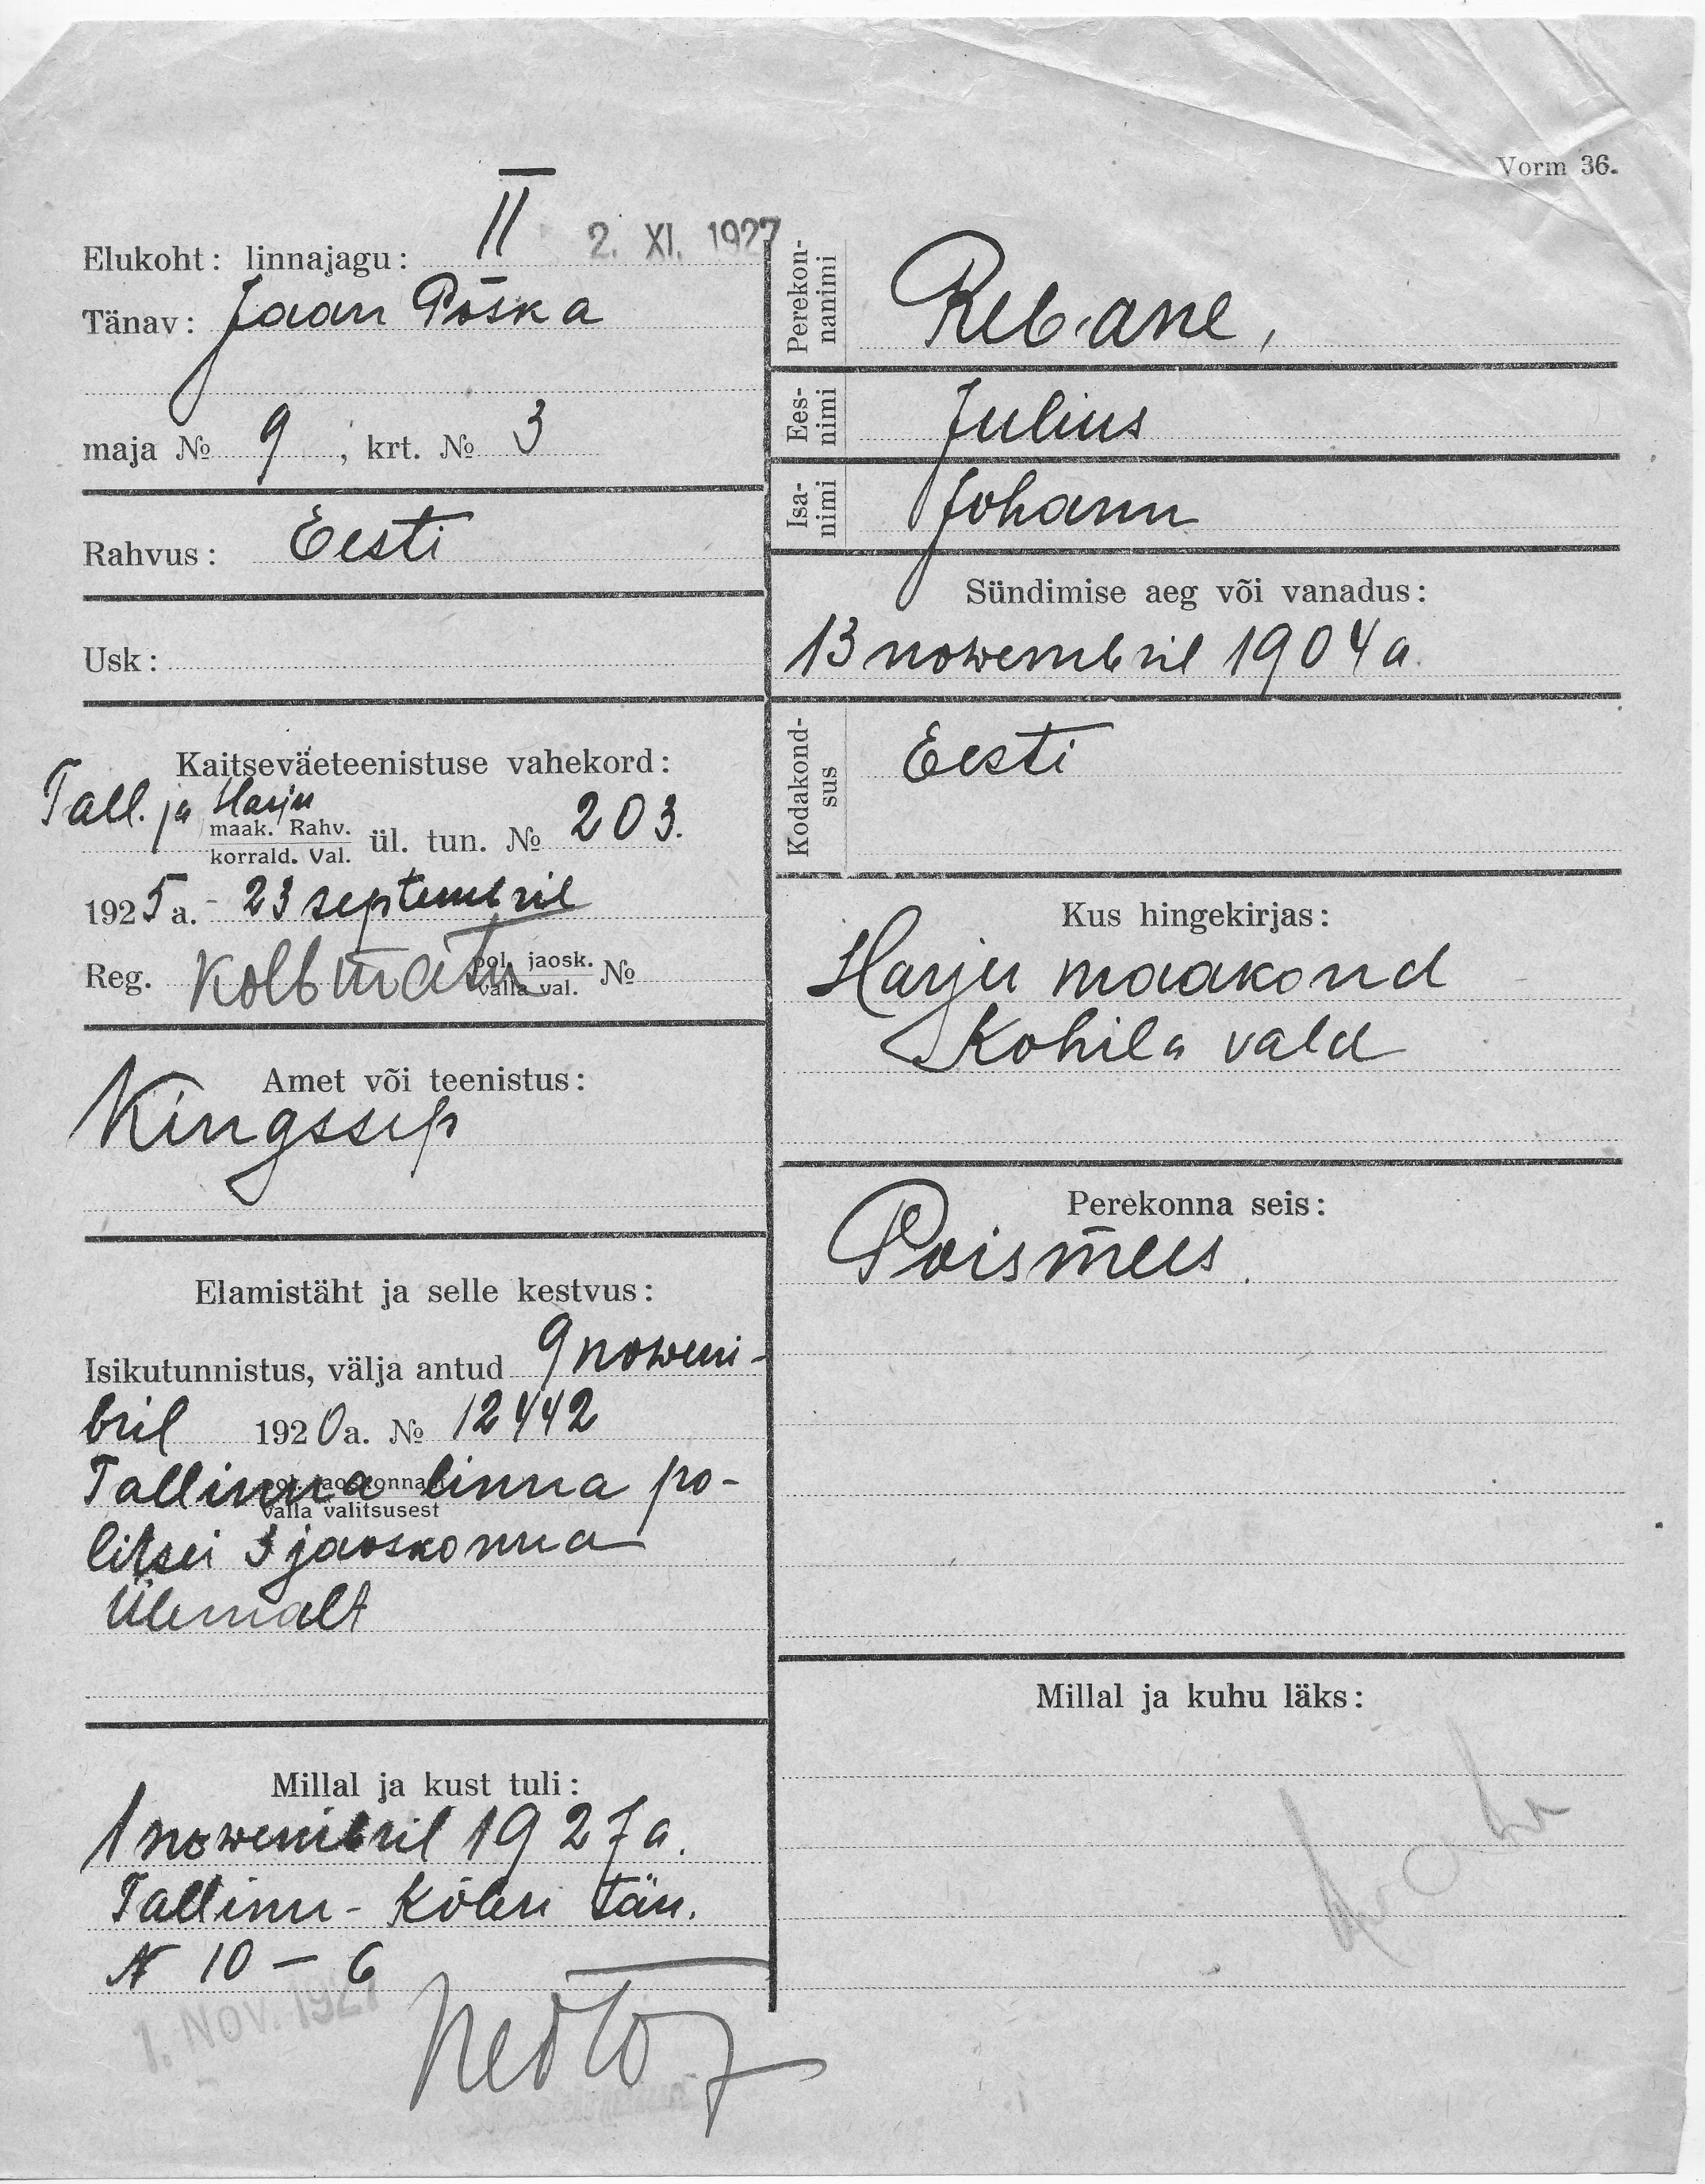 Vorm 36.
Elukoht: linnajagu: II 2. XI. 1927
Tänav: Jaan Poska
maja № 9, krt. № 3
Rahvus: Eesti
Usk:
Kaitseväeteenistuse vahekord:
Tall. ja Harju
maak. Rahv.
korrald. Val. ül. tun. № 203.
1925 a. - 23 septembril
Reg. Kolbmatu pol. jaosk.
valla val. №
Amet või teenistus:
Kingssep
Elamistäht ja selle kestvus:
Isikutunnistus, välja antud 9 nowem-
bril 1920 a. № 12442
Tallinna linna po-
valla valitsusest
litsei 3 jaoskonna
Ülemalt
Millal ja kust tuli:
1 nowembril 1927 a.
Tallinn - Köleri tän.
N 10 - 6
1. NOV. 1927
Perekon-
nanimi Rebane,
Ees-
nimi Julius
Isa-
nimi Johann
Sündimise aeg või vanadus:
13 nowembril 1904 a.
Kodakond-
sus Eesti
Kus hingekirjas:
Harju maakond
Kohila vald
Perekonna seis:
Poismees.
Millal ja kuhu läks: